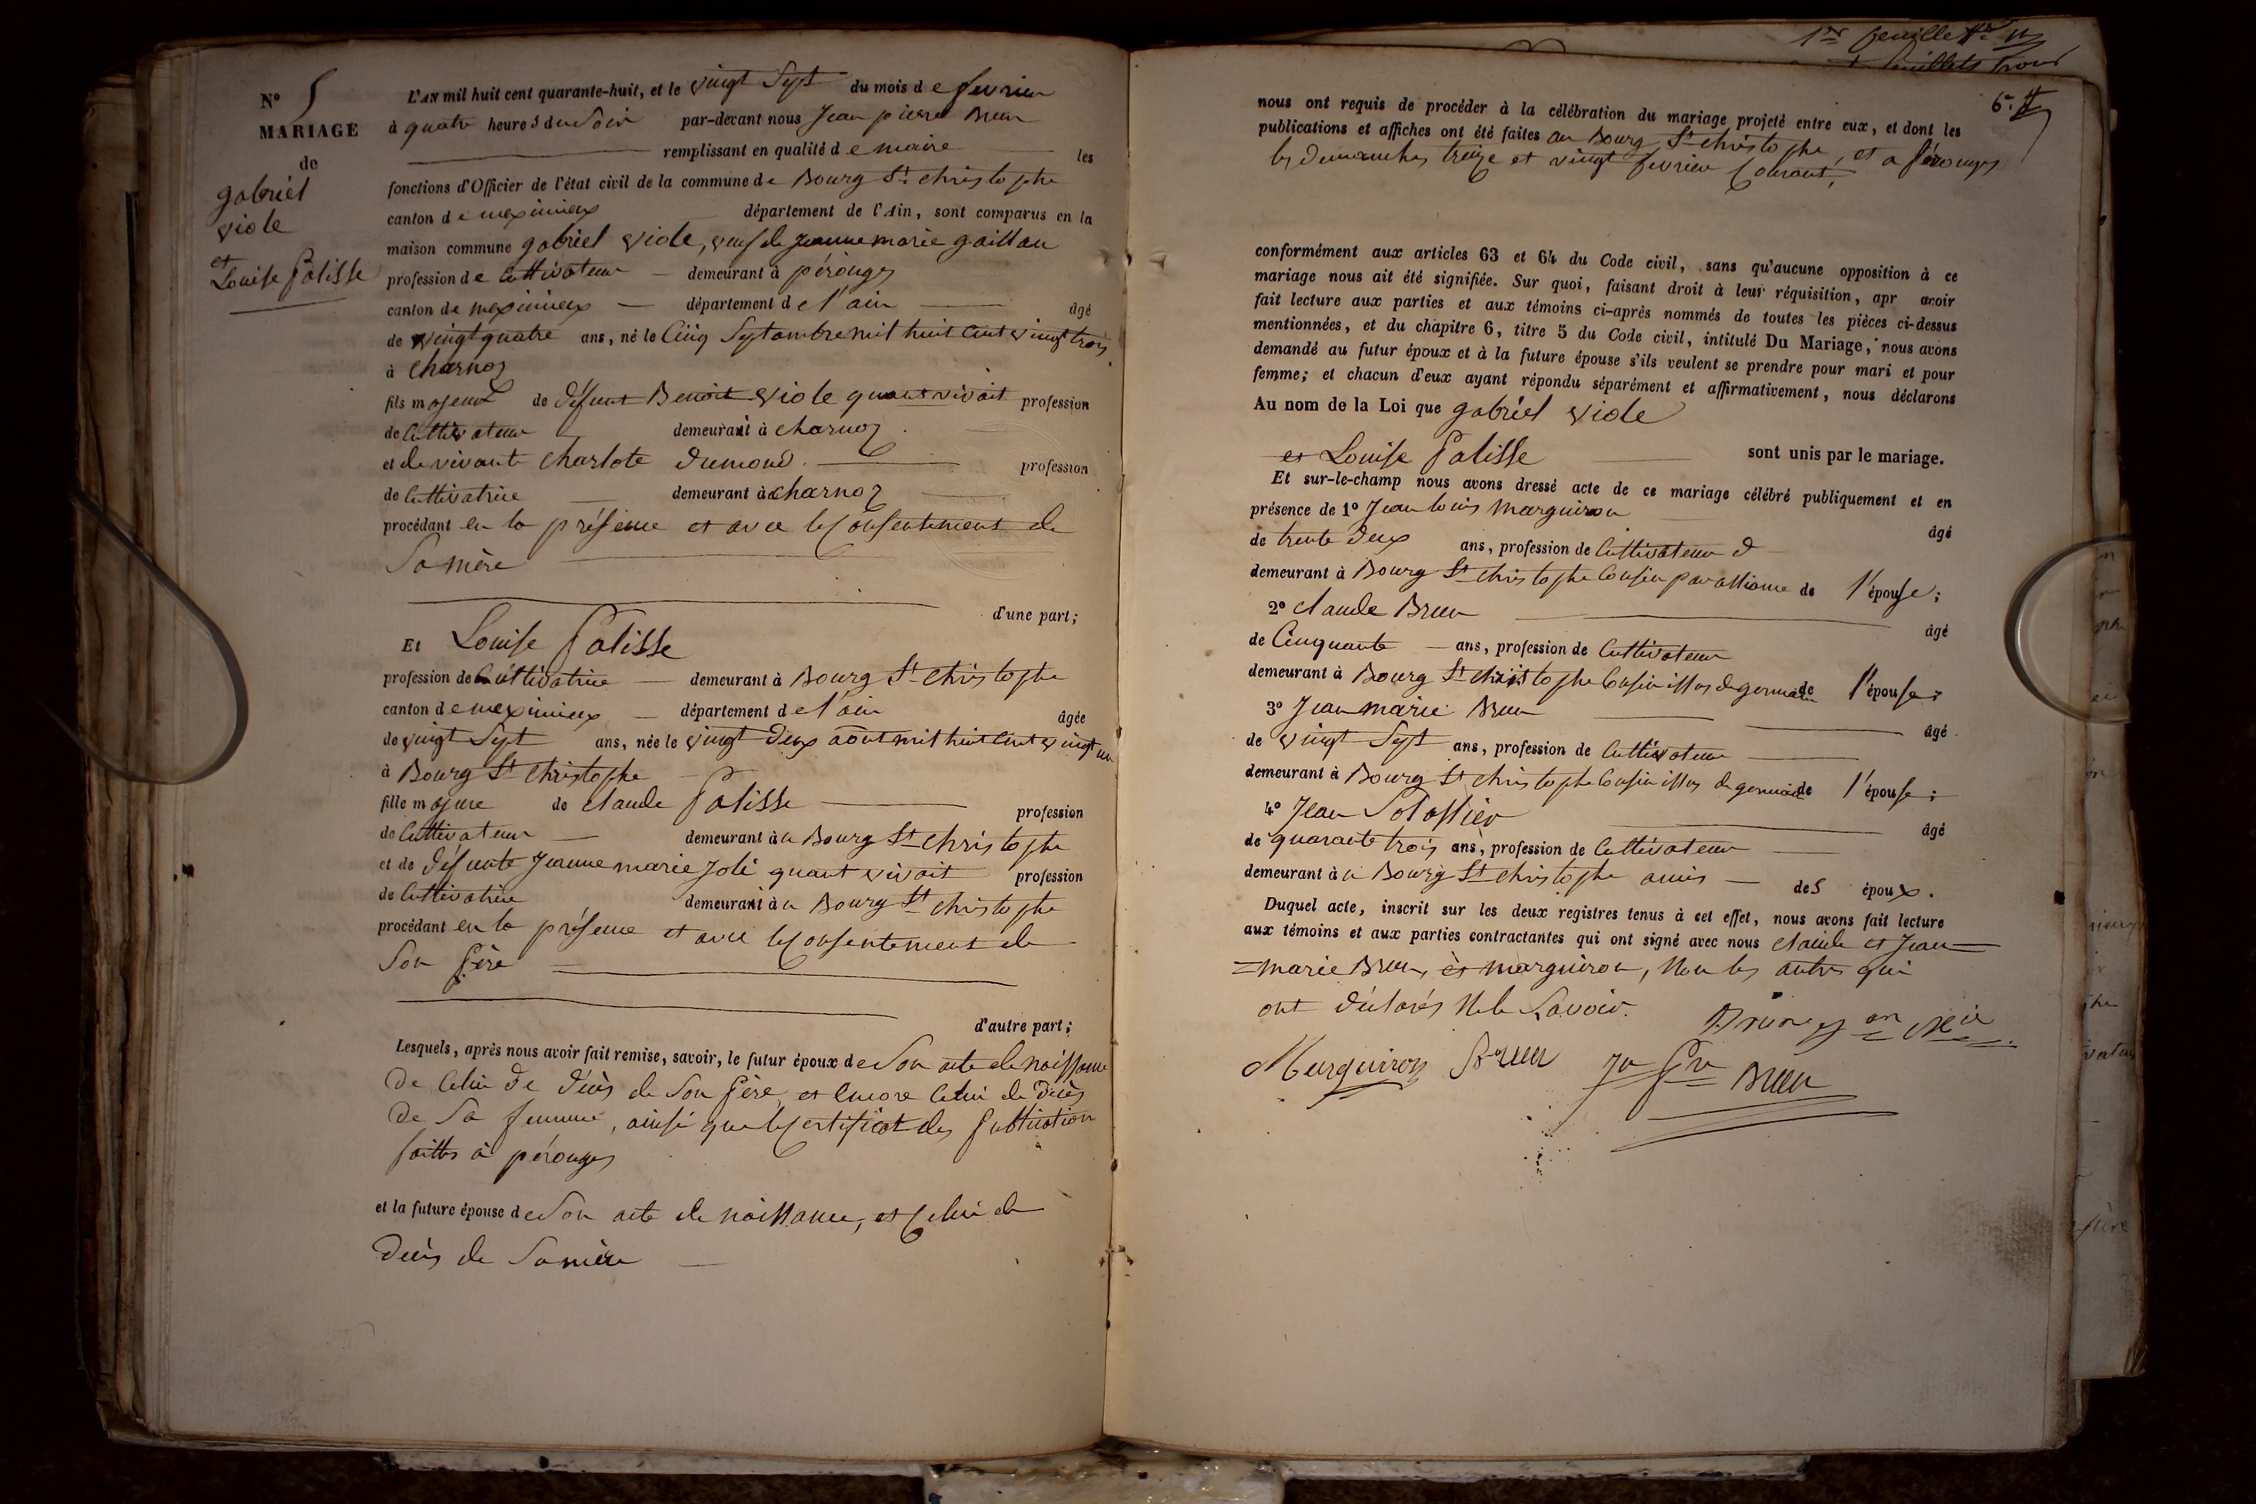 N° 5
MARIAGE
de
gabriel
viole
et
Louise Palisse
L'AN mil huit cent quarante-huit, et le vingt Sept du mois de fevrier
à quatre heures du Soir par-devant nous Jean pierre Brun
remplissant en qualité de maire les
fonctions d'Officier de l'état civil de la commune de Bourg St christophe
canton de meximieux département de l'Ain, sont comparus en la
maison commune gabriel viole, veuf de jeanne marie gaillau
profession de Cultivateur demeurant à pérouges
canton de meximieux département de l'ain âgé
de vingt quatre ans, né le Cinq Septembre mil huit cent vingt trois
à charnoz
fils majeur de défunt Benoit viole quant vivait profession
de Cultivateur demeurant à charnoz
et de vivante charlote dumond profession
de Cultivatrice demeurant à charnoz
procédant en la présence et avec le Consentement de
Sa mère
d'une part;
Et Louise Palisse
profession de Cultivatrice demeurant à Bourg St christophe
canton de meximieux département de l'ain âgée
de vingt Sept ans, née le vingt deux août mil huit cent vingt un
à Bourg St christophe
fille majeure de claude Palisse profession
de Cultivateur demeurant à Bourg St christophe
et de défunte jeanne marie joli quant vivait profession
de Cultivatrice demeurant à Bourg St christophe
procédant en la présence et avec le Consentement de
Son Père
d'autre part;
Lesquels, après nous avoir fait remise, savoir, le futur époux de Son acte de naissance
de Celui de décès de Son Père, et encore Celui de décès
de Sa femme, ainsi que le Certificat des Publication
faittes à pérouges
et la future épouse de Son acte de naissance, et Celui de
décès de Sa mère
1er feuillet
feuillets trois
6e
nous ont requis de procéder à la célébration du mariage projeté entre eux, et dont les
publications et affiches ont été faites au Bourg St christophe, et a pérouges
les dimanches treize et vingt fevrier Courant,
conformément aux articles 63 et 64 du Code civil, sans qu'aucune opposition à ce
mariage nous ait été signifiée. Sur quoi, faisant droit à leur réquisition, apr avoir
fait lecture aux parties et aux témoins ci-après nommés de toutes les pièces ci-dessus
mentionnées, et du chapitre 6, titre 5 du Code civil, intitulé Du Mariage, nous avons
demandé au futur époux et à la future épouse s'ils veulent se prendre pour mari et pour
femme; et chacun d'eux ayant répondu séparément et affirmativement, nous déclarons
Au nom de la Loi que gabriel viole
et Louise Palisse sont unis par le mariage.
Et sur-le-champ nous avons dressé acte de ce mariage célébré publiquement et en
présence de 1° Jean louis Marguiron âgé
de trente deux ans, profession de Cultivateur
demeurant à Bourg St christophe Cousin par alliance de l'épouse;
2° claude Brun âgé
de Cinquante ans, profession de Cultivateur
demeurant à Bourg St christophe Cousin issus de germain de l'épouse;
3° Jean marie Brun âgé
de vingt Sept ans, profession de Cultivateur
demeurant à Bourg St christophe Cousin issus de germain de l'épouse;
4° Jean âgé
de quarante trois ans, profession de Cultivateur
demeurant à Bourg St christophe amis des époux.
Duquel acte, inscrit sur les deux registres tenus à cet effet, nous avons fait lecture
aux témoins et aux parties contractantes qui ont signé avec nous claude et Jean
marie Brun, et marguiron, Non les autres qui
ont déclarés Ne le Savoir.
Marguiron Brun Jn Pre Brun